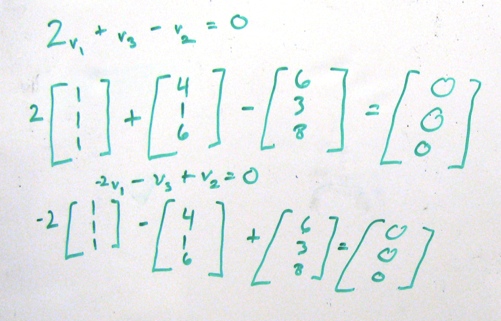 2v₁ + v₃ - v₂ = 0
2 [1 1 1] + [4 1 6] - [6 3 8] = [0 0 0]
-2v₁ - v₃ + v₂ = 0
-2 [1 1 1] - [4 1 6] + [6 3 8] = [0 0 0]